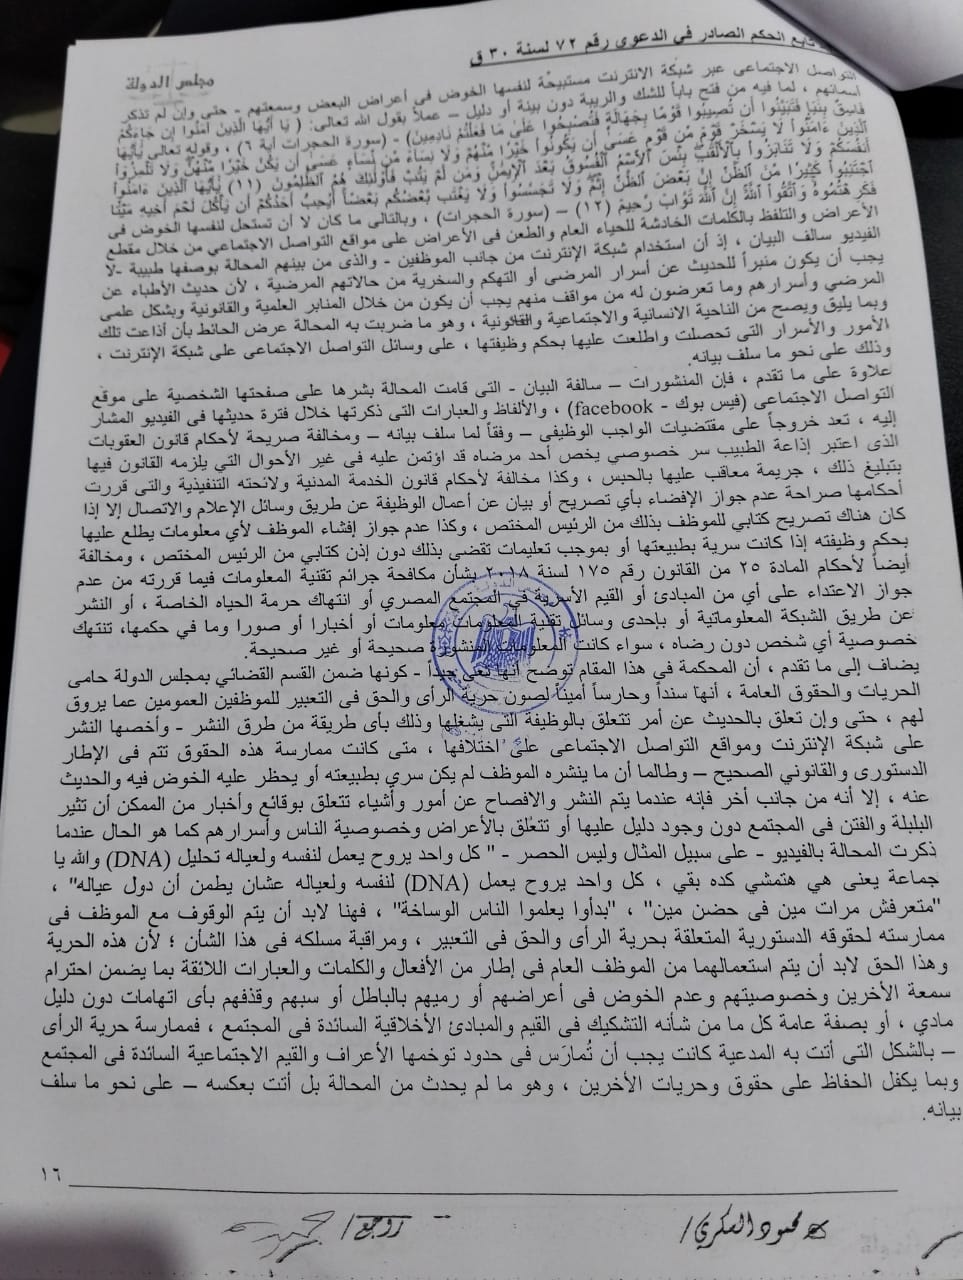 تابع الحكم الصادر في الدعوى رقم ٧٢ لسنة ٣٠ ق
مجلس الدولة
التواصل الاجتماعى عبر شبكة الانترنت مستبيحة لنفسها الخوض فى أعراض البعض وسمعتهم - حتى وإن لم تذكر
أسمائهم ، لما فيه من فتح باباً للشك والريبة دون بينة أو دليل – عملاً بقول الله تعالى: ( يَا أَيُّهَا الَّذِينَ آمَنُوا إِن جَاءَكُمْ
فَاسِقٌ بِنَبَإٍ فَتَبَيَّنُوا أَن تُصِيبُوا قَوْمًا بِجَهَالَةٍ فَتُصْبِحُوا عَلَىٰ مَا فَعَلْتُمْ نَادِمِينَ) - (سورة الحجرات آية ٦) ، وقوله تعالى يَٰأَيُّهَا
الَّذِينَ ءَامَنُواْ لَا يَسْخَرْ قَوْمٌ مِّن قَوْمٍ عَسَىٰ أَن يَكُونُواْ خَيْرًا مِّنْهُمْ وَلَا نِسَاءٌ مِّن نِّسَاءٍ عَسَىٰ أَن يَكُنَّ خَيْرًا مِّنْهُنَّ وَلَا تَلْمِزُواْ
أَنفُسَكُمْ وَلَا تَنَابَزُواْ بِالْأَلْقَٰبِ بِئْسَ الِاسْمُ الْفُسُوقُ بَعْدَ الْإِيمَٰنِ وَمَن لَّمْ يَتُبْ فَأُوْلَٰئِكَ هُمُ الظَّٰلِمُونَ (١١) يَٰأَيُّهَا الَّذِينَ ءَامَنُواْ
اجْتَنِبُواْ كَثِيرًا مِّنَ الظَّنِّ إِنَّ بَعْضَ الظَّنِّ إِثْمٌ وَلَا تَجَسَّسُواْ وَلَا يَغْتَب بَّعْضُكُم بَعْضًا أَيُحِبُّ أَحَدُكُمْ أَن يَأْكُلَ لَحْمَ أَخِيهِ مَيْتًا
فَكَرِهْتُمُوهُ وَاتَّقُواْ اللَّهَ إِنَّ اللَّهَ تَوَّابٌ رَّحِيمٌ (١٢) – (سورة الحجرات) ، وبالتالى ما كان لا أن تستحل لنفسها الخوض فى
الأعراض والتلفظ بالكلمات الخادشة للحياء العام والطعن فى الأعراض على مواقع التواصل الاجتماعي من خلال مقطع
الفيديو سالف البيان ، إذ أن استخدام شبكة الإنترنت من جانب الموظفين - والذى من بينهم المحالة بوصفها طبيبة -لا
يجب أن يكون منبراً للحديث عن أسرار المرضى أو التهكم والسخرية من حالاتهم المرضية ، لأن حديث الأطباء عن
المرضي وأسرارهم وما تعرضون له من مواقف منهم يجب أن يكون من خلال المنابر العلمية والقانونية وبشكل علمى
وبما يليق ويصح من الناحية الانسانية والاجتماعية والقانونية ، وهو ما ضربت به المحالة عرض الحائط بأن أذاعت تلك
الأمور والأسرار التى تحصلت واطلعت عليها بحكم وظيفتها ، على وسائل التواصل الاجتماعى على شبكة الإنترنت ،
وذلك على نحو ما سلف بيانه.
علاوة على ما تقدم ، فإن المنشورات – سالفة البيان - التى قامت المحالة بشرها على صفحتها الشخصية على موقع
التواصل الاجتماعى (فيس بوك - facebook) ، والألفاظ والعبارات التى ذكرتها خلال فترة حديثها فى الفيديو المشار
إليه ، تعد خروجاً على مقتضيات الواجب الوظيفى – وفقاً لما سلف بيانه – ومخالفة صريحة لأحكام قانون العقوبات
الذى اعتبر إذاعة الطبيب سر خصوصي يخص أحد مرضاه قد اؤتمن عليه فى غير الأحوال التي يلزمه القانون فيها
بتبليغ ذلك ، جريمة معاقب عليها بالحبس ، وكذا مخالفة لأحكام قانون الخدمة المدنية ولائحته التنفيذية والتى قررت
أحكامها صراحة عدم جواز الإفضاء بأي تصريح أو بيان عن أعمال الوظيفة عن طريق وسائل الإعلام والاتصال إلا إذا
كان هناك تصريح كتابي للموظف بذلك من الرئيس المختص ، وكذا عدم جواز إفشاء الموظف لأي معلومات يطلع عليها
بحكم وظيفته إذا كانت سرية بطبيعتها أو بموجب تعليمات تقضي بذلك دون إذن كتابي من الرئيس المختص ، ومخالفة
أيضاً لأحكام المادة ٢٥ من القانون رقم ١٧٥ لسنة ٢٠١٨ بشأن مكافحة جرائم تقنية المعلومات فيما قررته من عدم
جواز الاعتداء على أي من المبادئ أو القيم الأسرية في المجتمع المصري أو انتهاك حرمة الحياه الخاصة ، أو النشر
عن طريق الشبكة المعلوماتية أو بإحدى وسائل تقنية المعلومات معلومات أو أخبارا أو صورا وما في حكمها، تنتهك
خصوصية أي شخص دون رضاه ، سواء كانت المعلومات المنشورة صحيحة أو غير صحيحة.
يضاف إلى ما تقدم ، أن المحكمة في هذا المقام توضح أنها تعي جيداً - كونها ضمن القسم القضائي بمجلس الدولة حامى
الحريات والحقوق العامة ، أنها سنداً وحارساً أميناً لصون حرية الرأى والحق فى التعبير للموظفين العمومين عما يروق
لهم ، حتى وإن تعلق بالحديث عن أمر تتعلق بالوظيفة التى يشغلها وذلك بأى طريقة من طرق النشر - وأخصها النشر
على شبكة الإنترنت ومواقع التواصل الاجتماعى على اختلافها ، متى كانت ممارسة هذه الحقوق تتم فى الإطار
الدستورى والقانوني الصحيح – وطالما أن ما ينشره الموظف لم يكن سري بطبيعته أو يحظر عليه الخوض فيه والحديث
عنه ، إلا أنه من جانب أخر فإنه عندما يتم النشر والافصاح عن أمور وأشياء تتعلق بوقائع وأخبار من الممكن أن تثير
البلبلة والفتن فى المجتمع دون وجود دليل عليها أو تتعلق بالأعراض وخصوصية الناس وأسرارهم كما هو الحال عندما
ذكرت المحالة بالفيديو - على سبيل المثال وليس الحصر - " كل واحد يروح يعمل لنفسه ولعياله تحليل (DNA) والله يا
جماعة يعنى هي هتمشي كده بقي ، كل واحد يروح يعمل (DNA) لنفسه ولعياله عشان يطمن أن دول عياله" ،
"متعرفش مرات مين فى حضن مين" ، "بدأوا يعلموا الناس الوساخة" ، فهنا لابد أن يتم الوقوف مع الموظف فى
ممارسته لحقوقه الدستورية المتعلقة بحرية الرأى والحق في التعبير ، ومراقبة مسلكه فى هذا الشأن ؛ لأن هذه الحرية
وهذا الحق لابد أن يتم استعمالهما من الموظف العام فى إطار من الأفعال والكلمات والعبارات اللائقة بما يضمن احترام
سمعة الأخرين وخصوصيتهم وعدم الخوض فى أعراضهم أو رميهم بالباطل أو سبهم وقذفهم بأى اتهامات دون دليل
مادي ، أو بصفة عامة كل ما من شأنه التشكيك فى القيم والمبادئ الأخلاقية السائدة فى المجتمع ، فممارسة حرية الرأى
– بالشكل التى أتت به المدعية كانت يجب أن تُمارَس فى حدود توخمها الأعراف والقيم الاجتماعية السائدة فى المجتمع
وبما يكفل الحفاظ على حقوق وحريات الأخرين ، وهو ما لم يحدث من المحالة بل أتت بعكسه – على نحو ما سلف
بيانه.
١٦
محمود السكري/
روجع/